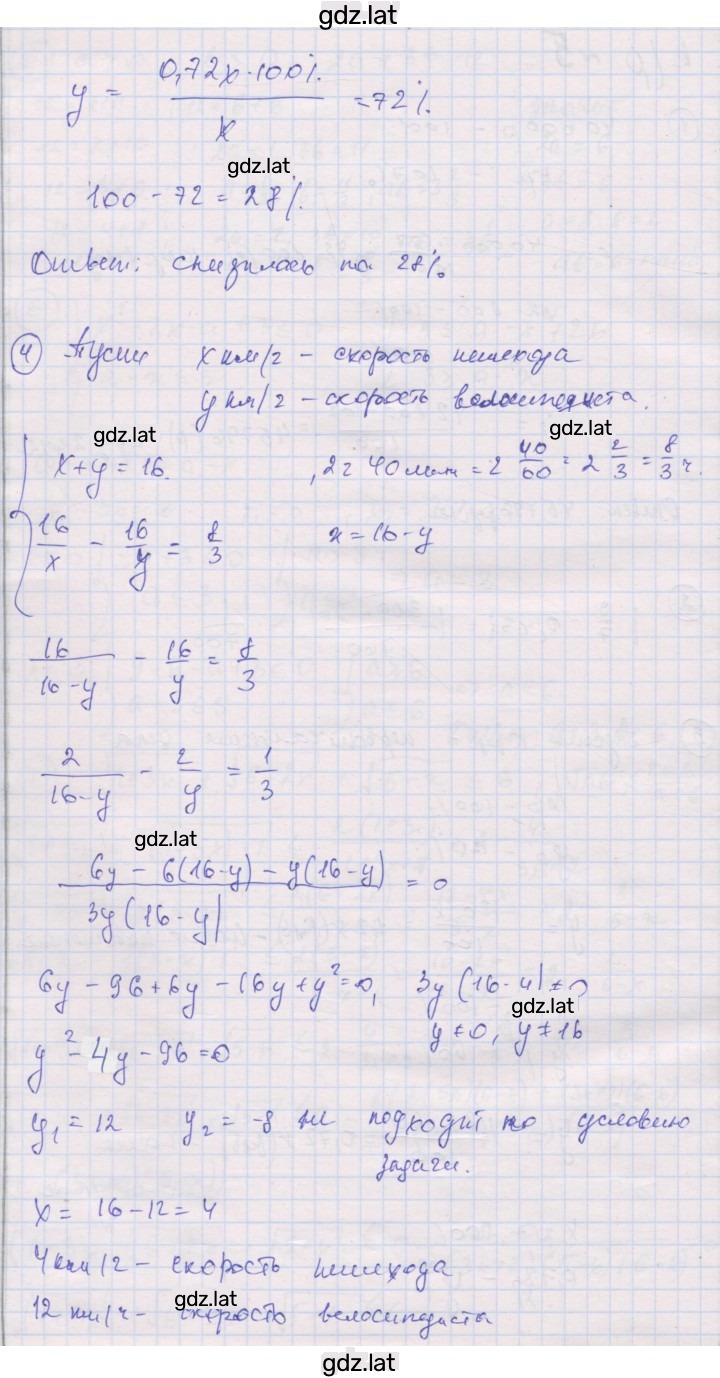 gdz.lat
y = 0,72x·100% / x = 72%.
gdz.lat
100 - 72 = 28%.
Ответ: снизилась на 28%.
4 Пусть x км/г - скорость пешехода
y км/г - скорость велосипедиста.
gdz.lat
gdz.lat
x + y = 16. , 2г 40мин = 2 40/60 = 2 2/3 = 8/3 ч.
16/x - 16/y = 8/3 x = 16 - y
16/(16-y) - 16/y = 8/3
2/(16-y) - 2/y = 1/3
gdz.lat
6y - 6(16-y) - y(16-y) / 3y(16-y) = 0
6y - 96 + 6y - 16y + y² = 0, 3y(16-y) ≠ 0
gdz.lat
y ≠ 0, y ≠ 16
y² - 4y - 96 = 0
y₁ = 12 y₂ = -8 не подходит по условию
задачи.
x = 16 - 12 = 4
4 км/г - скорость пешехода
gdz.lat
12 км/ч - скорость велосипедиста
gdz.lat